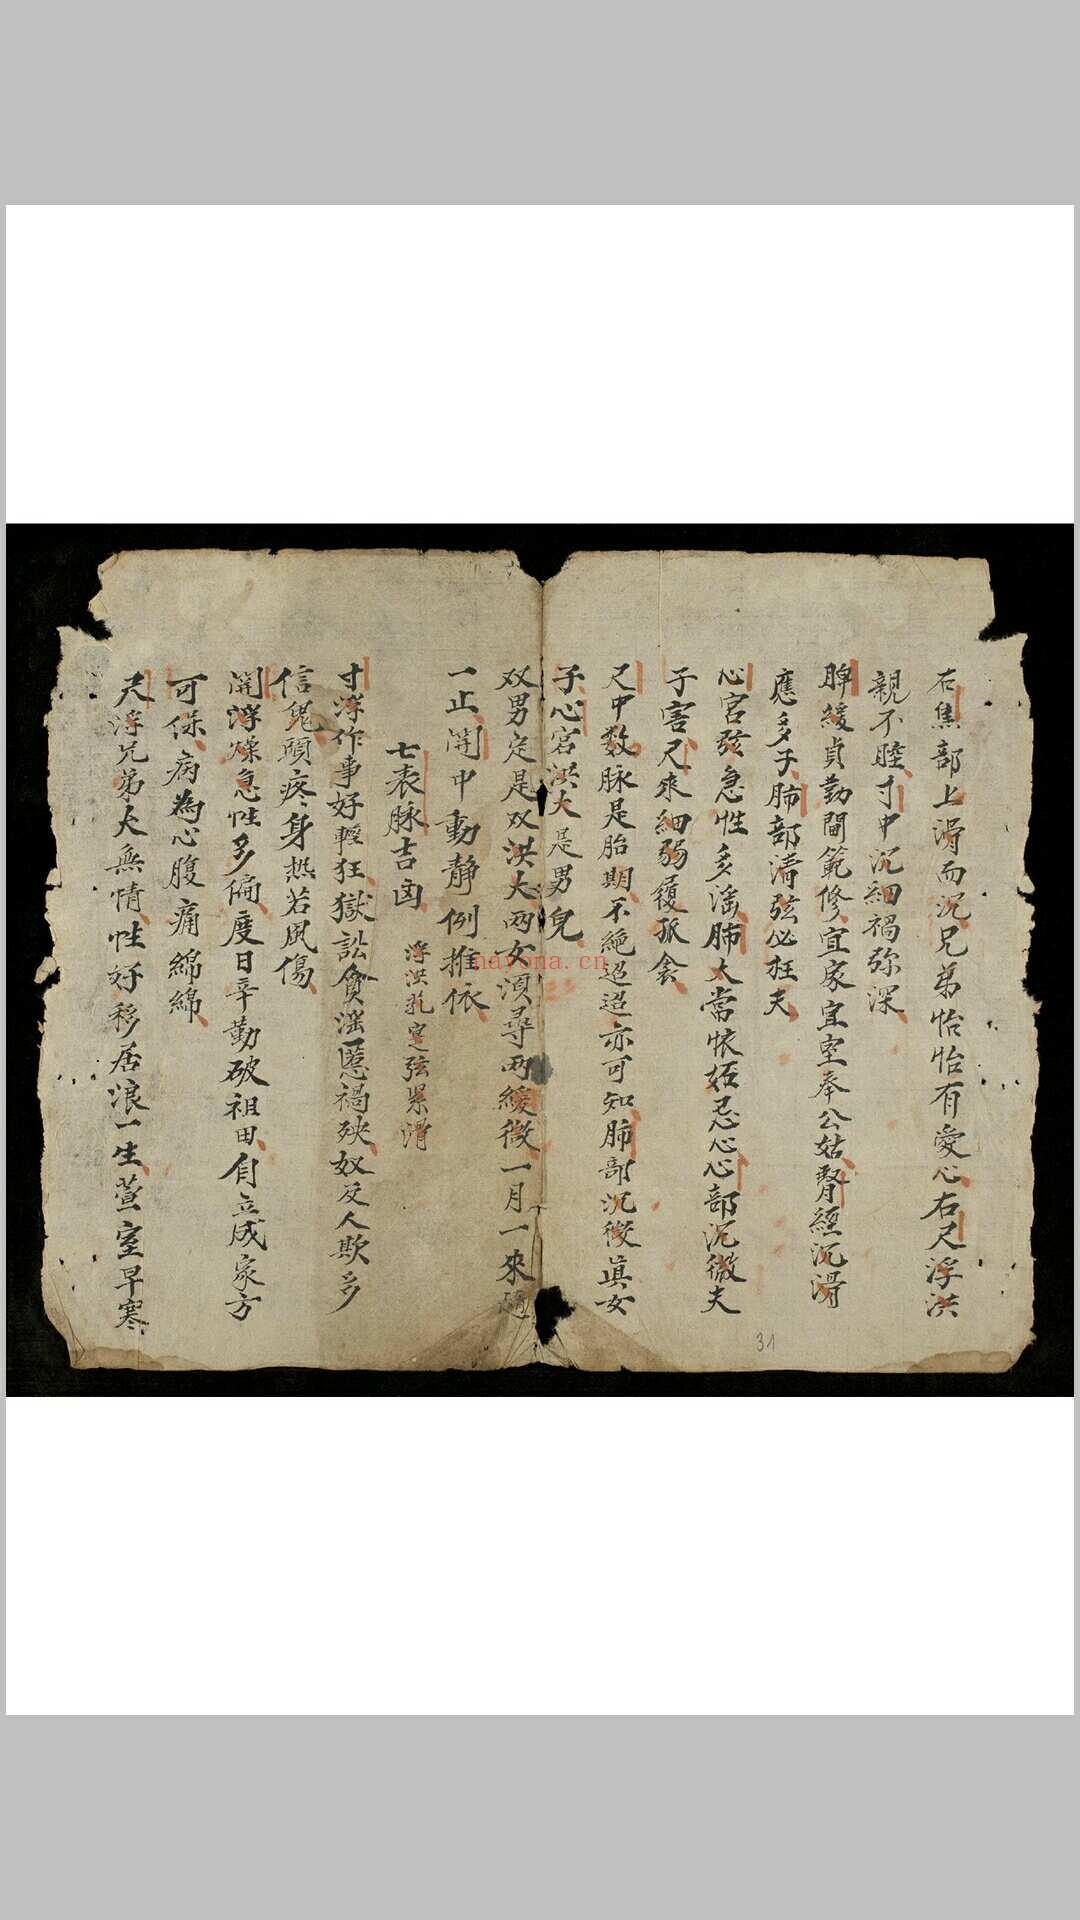 右焦部上滑而沉兄弟怡怡有愛心右尺浮洪
親不睦寸中沉細禍弥深
脾緩貞勤閫範修宜家宜室奉公姑腎經沉滑
應多子肺部清弦必狂夫
心宮弦急性多滛肺大當懷妬忌心心部沉微夫
子害尺來細弱獲孤衾
尺中数脉是胎期不絶迢迢亦可知肺部沉微真女
子心宮洪大是男兒
双男定是双洪大両女須尋両緩微一月一來隨
一止関中動静例推依
七表脉吉凶 浮洪芤寔弦緊滑
寸浮作事好輕狂獄訟貪滛慝禍殃奴反人欺多
信鬼頭疼身热若風傷
関浮燥急性多偏度日辛勤破祖田自立成家方
可保病為心腹痛綿綿
尺浮兄弟大無情性好移居浪一生萱室早寒
31
nayona.cn